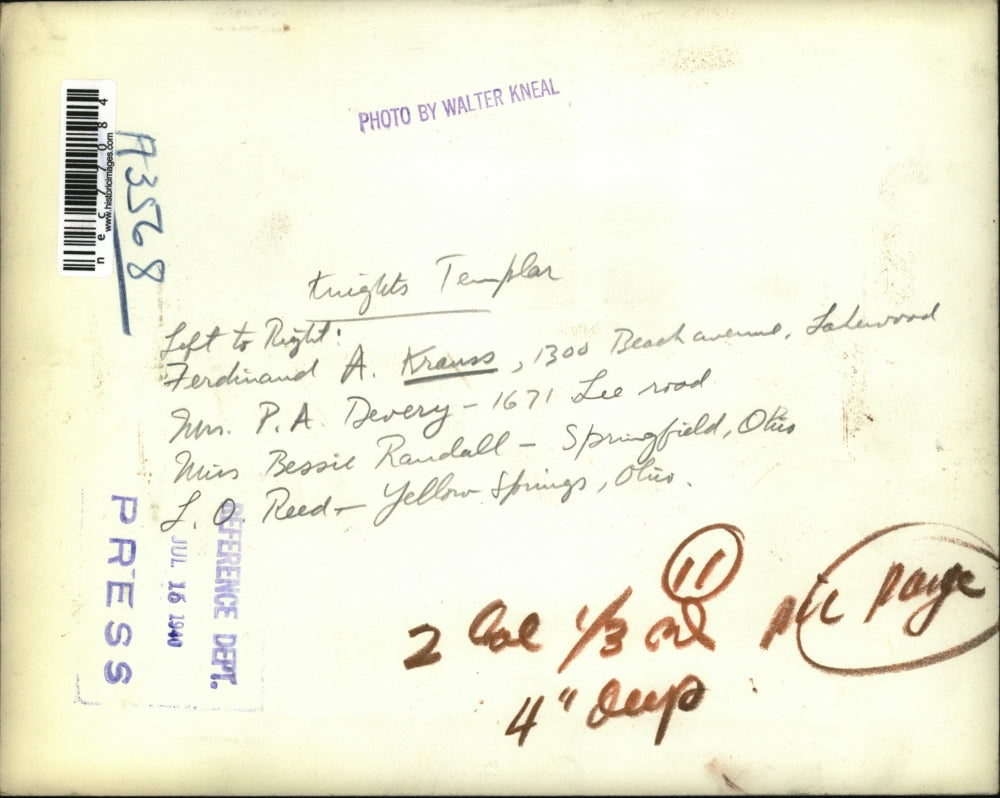 PHOTO BY WALTER KNEAL
nec77084
www.historicimages.com
A3568
Knights Templar
Left to Right:
Ferdinand A. Krauss, 1300 Beach avenue, Lakewood
Mrs. P. A. Devery - 1671 Lee road
Miss Bessie Randall - Springfield, Ohio
L. O. Reed - Yellow Springs, Ohio.
PRESS
JUL 16 1940
REFERENCE DEPT.
11
2 Col 1/3 pic page
4" deep